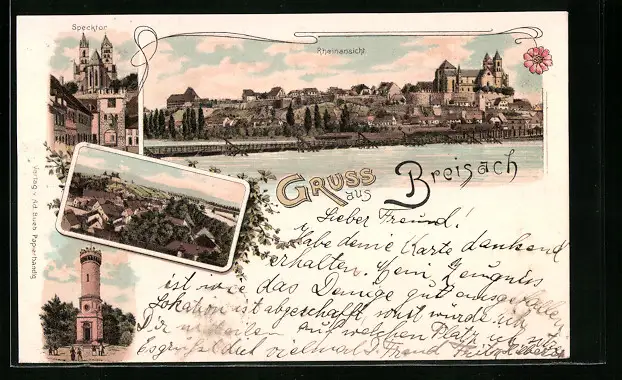 Specktor
Rheinansicht
GRUSS
aus
Breisach
Verlag v. Ad. Buch Papierhandlg.
Lieber Freund!
Habe deine Karte dankend
erhalten. Mein Zeugniss
ist wie das Deinige gut ausgefallen
Lokation ist abgeschafft sonst wurde ich
Dir mitteilen auf welchen Platz ich
Es grüßt dich vielmals Freund